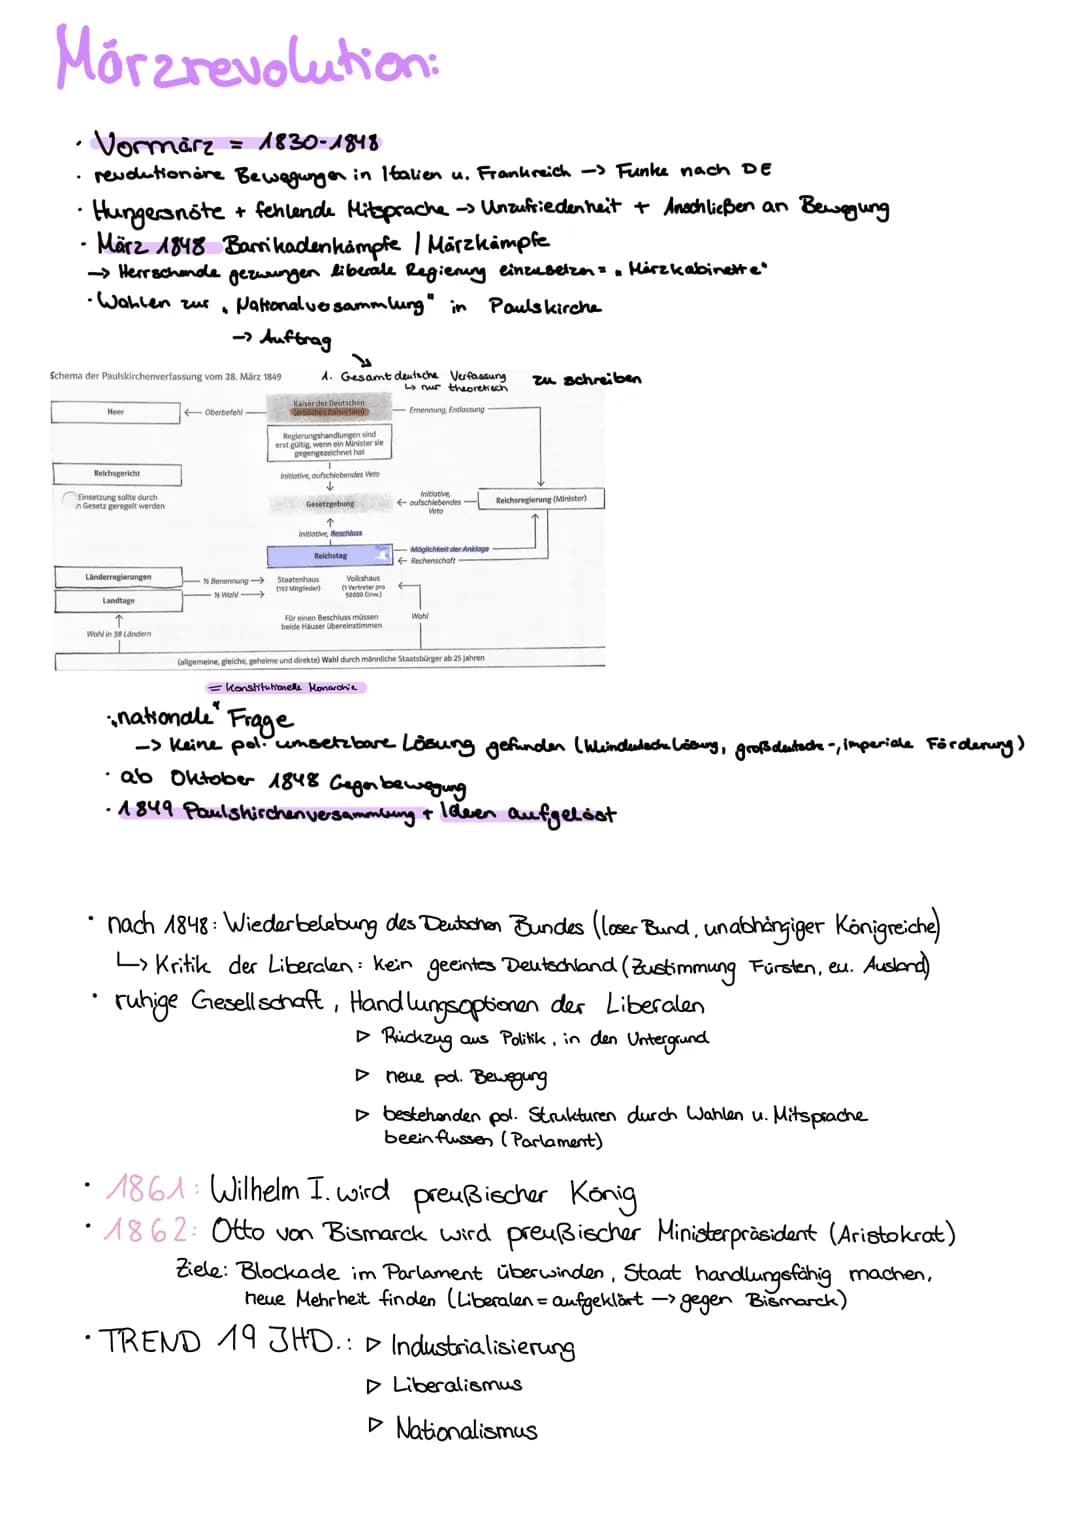 Märzrevolution:
· Vormärz = 1830-1848
· revolutionäre Bewegungen in Italien u. Frankreich -> Funke nach DE
· Hungersnöte + fehlende Mitsprache -> Unzufriedenheit + Anschließen an Bewegung
· März 1848 Barrikadenkämpfe / Märzkämpfe
-> Herrschende gezwungen liberale Regierung einzusetzen = „Märzkabinette"
· Wahlen zur „Nationalversammlung" in Paulskirche
-> Auftrag
Schema der Paulskirchenverfassung vom 28. März 1849
1. Gesamtdeutsche Verfassung zu schreiben
↳ nur theoretisch
Heer
← Oberbefehl
Kaiser der Deutschen
(erbliches Kaisertum)
Ernennung, Entlassung
Regierungshandlungen sind
erst gültig, wenn ein Minister sie
gegengezeichnet hat
Reichsgericht
Einsetzung sollte durch
n Gesetz geregelt werden
Initiative, aufschiebendes Veto
Gesetzgebung
Initiative,
← aufschiebendes
Veto
Reichsregierung (Minister)
Initiative, Beschluss
Reichstag
Möglichkeit der Anklage
← Rechenschaft
Länderregierungen
½ Benennung →
Staatenhaus
(192 Mitglieder)
Volkshaus
(1 Vertreter pro
50000 Einw.)
Landtage
½ Wahl →
Wahl in 38 Ländern
Für einen Beschluss müssen
beide Häuser übereinstimmen
Wahl
(allgemeine, gleiche, geheime und direkte) Wahl durch männliche Staatsbürger ab 25 Jahren
= Konstitutionelle Monarchie
· „nationale" Frage
-> Keine pol. umsetzbare Lösung gefunden (kleindeutsche Lösung, großdeutsche -, imperiale Förderung)
· ab Oktober 1848 Gegenbewegung
· 1849 Paulskirchenversammlung + Ideen aufgelöst
· nach 1848: Wiederbelebung des Deutschen Bundes (loser Bund, unabhängiger Königreiche)
↳ Kritik der Liberalen: Kein geeintes Deutschland (Zustimmung Fürsten, eu. Ausland)
· ruhige Gesellschaft, Handlungsoptionen der Liberalen
▷ Rückzug aus Politik, in den Untergrund
▷ neue pol. Bewegung
▷ bestehenden pol. Strukturen durch Wahlen u. Mitsprache
beeinflussen (Parlament)
· 1861: Wilhelm I. wird preußischer König
· 1862: Otto von Bismarck wird preußischer Ministerpräsident (Aristokrat)
Ziele: Blockade im Parlament überwinden, Staat handlungsfähig machen,
neue Mehrheit finden (Liberalen = aufgeklärt -> gegen Bismarck)
· TREND 19 JHD.: ▷ Industrialisierung
▷ Liberalismus
▷ Nationalismus